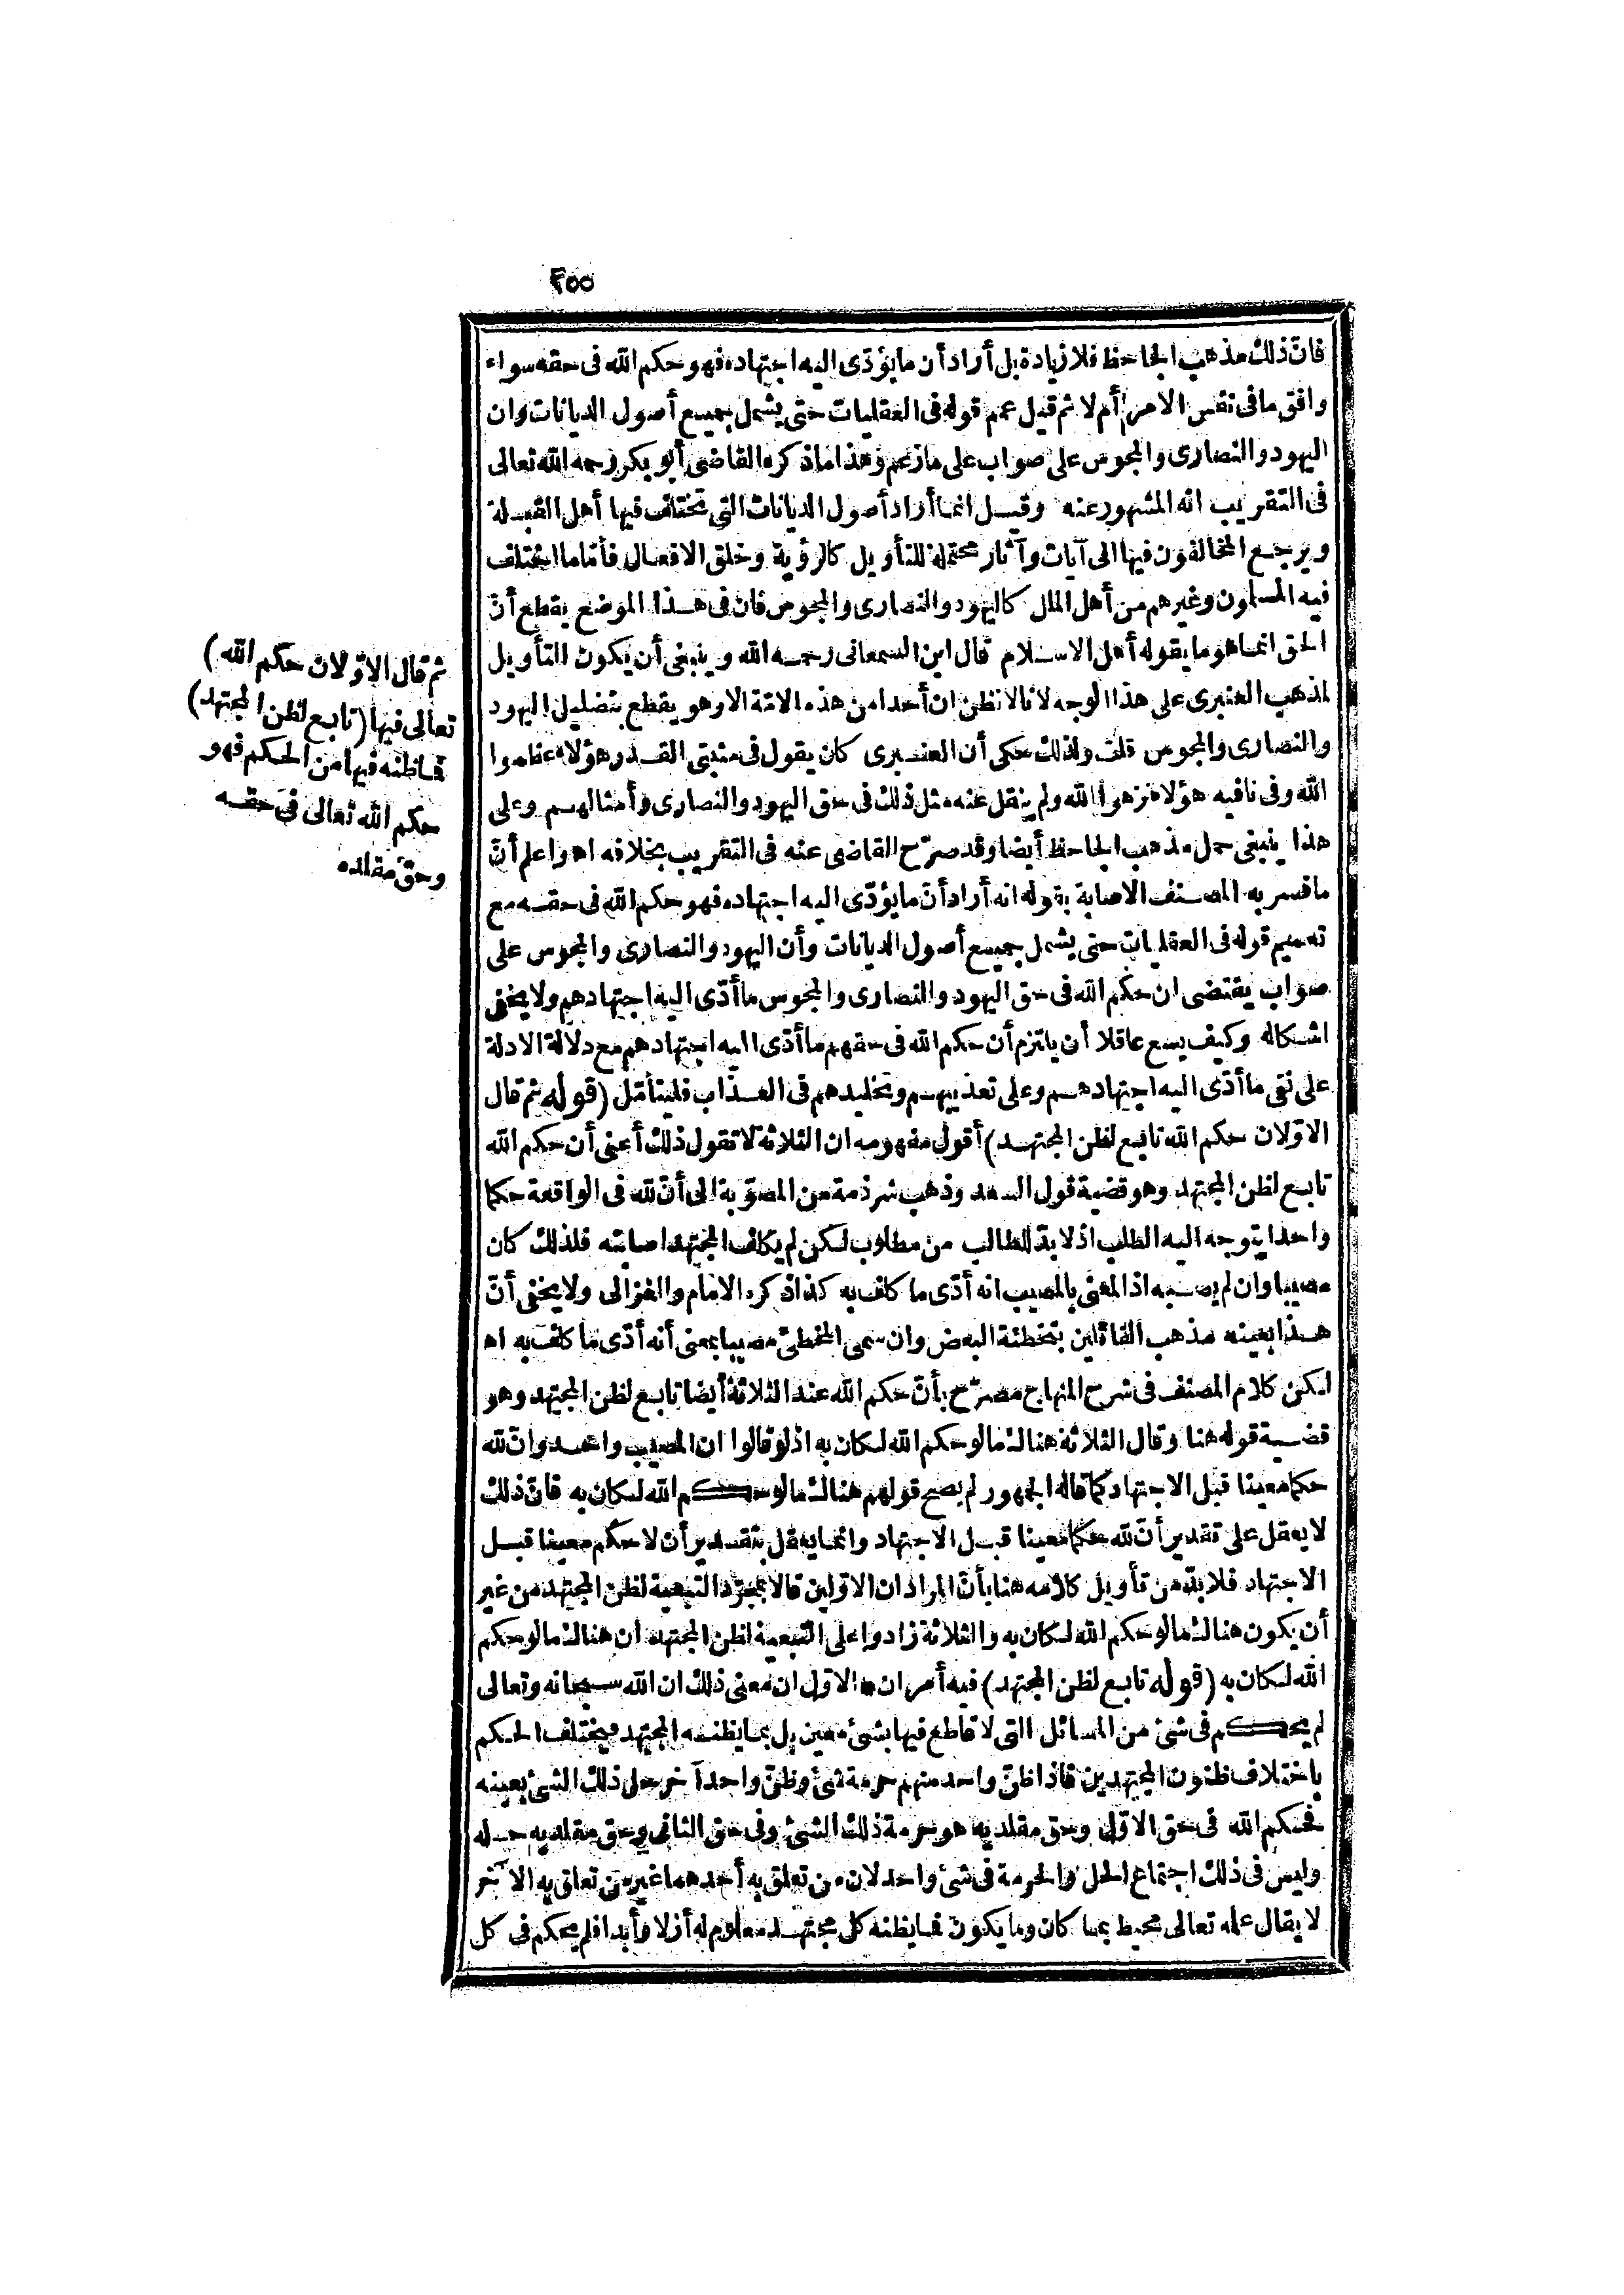 ٢٥٥
فانّ ذلك مذهب الجاحظ فلا زيادة بل أراد أن ما يؤدّى اليه اجتهاده فهو حكم الله فى حقه سواء
وافق ما فى نفس الامر أم لا ثم قيل عمم قوله فى العقليات حتى يشمل جميع أصول الديانات وان
اليهود والنصارى والمجوس على صواب على ما زعم وهذا ما ذكره القاضى أبو بكر رحمه الله تعالى
فى التقريب انه المشهور عنه وقيل انما أراد أصول الديانات التى تختلف فيها أهل القبلة
ويرجع المخالفون فيها الى آيات وآثار محتملة للتأويل كالرؤية وخلق الافعال فأمّا ما اختلف
فيه المسلمون وغيرهم من أهل الملل كاليهود والنصارى والمجوس فان فى هذا الموضع يقطع أنّ
الحق انما هو ما يقوله أهل الاسلام قال ابن السمعانى رحمه الله وينبغى أن يكون التأويل
لمذهب العنبرى على هذا الوجه لانا لا نظن ان أحدا من هذه الامّة الا وهو يقطع بتضليل اليهود
والنصارى والمجوس قلت ولذلك حكى أن العنبرى كان يقول فى مثبتى القدر هؤلاء عظموا
الله وفى نافيه هؤلاء نزهوا الله ولم ينقل عنه مثل ذلك فى حق اليهود والنصارى وأمثالهم وعلى
هذا ينبغى حمل مذهب الجاحظ أيضا وقد صرّح القاضى عنه فى التقريب بخلافه اه واعلم أنّ
ما فسر به المصنف الاصابة بقوله انه أراد أنّ ما يؤدّى اليه اجتهاده فهو حكم الله فى حقه مع
تعميم قوله فى العقليات حتى يشمل جميع أصول الديانات وأن اليهود والنصارى والمجوس على
صواب يقتضى ان حكم الله فى حق اليهود والنصارى والمجوس ما أدّى اليه اجتهادهم ولا يخفى
اشكاله وكيف يسع عاقلا أن يلتزم أن حكم الله فى حقهم ما أدّى اليه اجتهادهم مع دلالة الادلة
على نفى ما أدّى اليه اجتهادهم وعلى تعذيبهم وتخليدهم فى العذاب فليتأمّل (قوله ثم قال
الاوّلان حكم الله تابع لظن المجتهد) أقول مفهومه ان الثلاثة لا تقول ذلك أعنى أن حكم الله
تابع لظن المجتهد وهو قضية قول السعد وذهب شرذمة من المصوّبة الى أنّ لله فى الواقعة حكما
واحدا يتوجه اليه الطلب اذ لا بدّ للطالب من مطلوب لكن لم يكلف المجتهد اصابته فلذلك كان
مصيبا وان لم يصبه اذ المعنى بالمصيب انه أدّى ما كلف به كذا ذكره الامام والغزالى ولا يخفى أنّ
هذا بعينه مذهب القائلين بتخطئة البعض وان سمى المخطئ مصيبا بمعنى أنه أدّى ما كلف به اه
لكن كلام المصنف فى شرح المنهاج مصرّح بأنّ حكم الله عند الثلاثة أيضا تابع لظن المجتهد وهو
قضية قوله هنا وقال الثلاثة هنالك ما لو حكم الله لكان به اذ لو قالوا ان المصيب واحد وانّ لله
حكما معينا قبل الاجتهاد كما قاله الجمهور لم يصح قولهم هنالك ما لو حكم الله لكان به فانّ ذلك
لا يعقل على تقدير أنّ لله حكما معينا قبل الاجتهاد وانما يعقل بتقدير أن لا حكم معينا قبل
الاجتهاد فلا بدّ من تأويل كلامه هنا بأنّ المراد ان الاوّلين قالا بمجرّد التبعية لظن المجتهد من غير
أن يكون هنالك ما لو حكم الله لكان به والثلاثة زادوا على التبعية لظن المجتهد ان هنالك ما لو حكم
الله لكان به (قوله تابع لظن المجتهد) فيه أمران * الاوّل ان معنى ذلك ان الله سبحانه وتعالى
لم يحكم فى شئ من المسائل التى لا قاطع فيها بشئ معين بل بما يظنه المجتهد فيختلف الحكم
باختلاف ظنون المجتهدين فاذا ظنّ واحد منهم حرمة شئ وظنّ واحد آخر حل ذلك الشئ بعينه
فحكم الله فى حق الاوّل وحق مقلديه هو حرمة ذلك الشئ وفى حق الثانى وحق مقلديه حله
وليس فى ذلك اجتماع الحل والحرمة فى شئ واحد لان من تعلق به أحدهما غير من تعلق به الآخر
لا يقال علمه تعالى محيط بما كان وما يكون فما يظنه كل مجتهد معلوم له أزلا وأبدا فلم يحكم فى كل
ثم قال الاوّلان حكم الله)
تعالى فيها (تابع لظن المجتهد)
فما ظنه فيها من الحكم فهو
حكم الله تعالى فى حقه
وحق مقلده